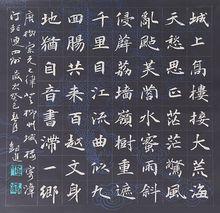 城上高樓接大荒海
天愁思正茫茫驚風
亂颭芙蓉水密雨斜
侵薜荔牆嶺樹重遮
千里目江流曲似九
腸共來百越文身
地猶自音書滯一鄉
唐柳宗元登柳州城樓寄漳
汀封連四州 歲次癸巳